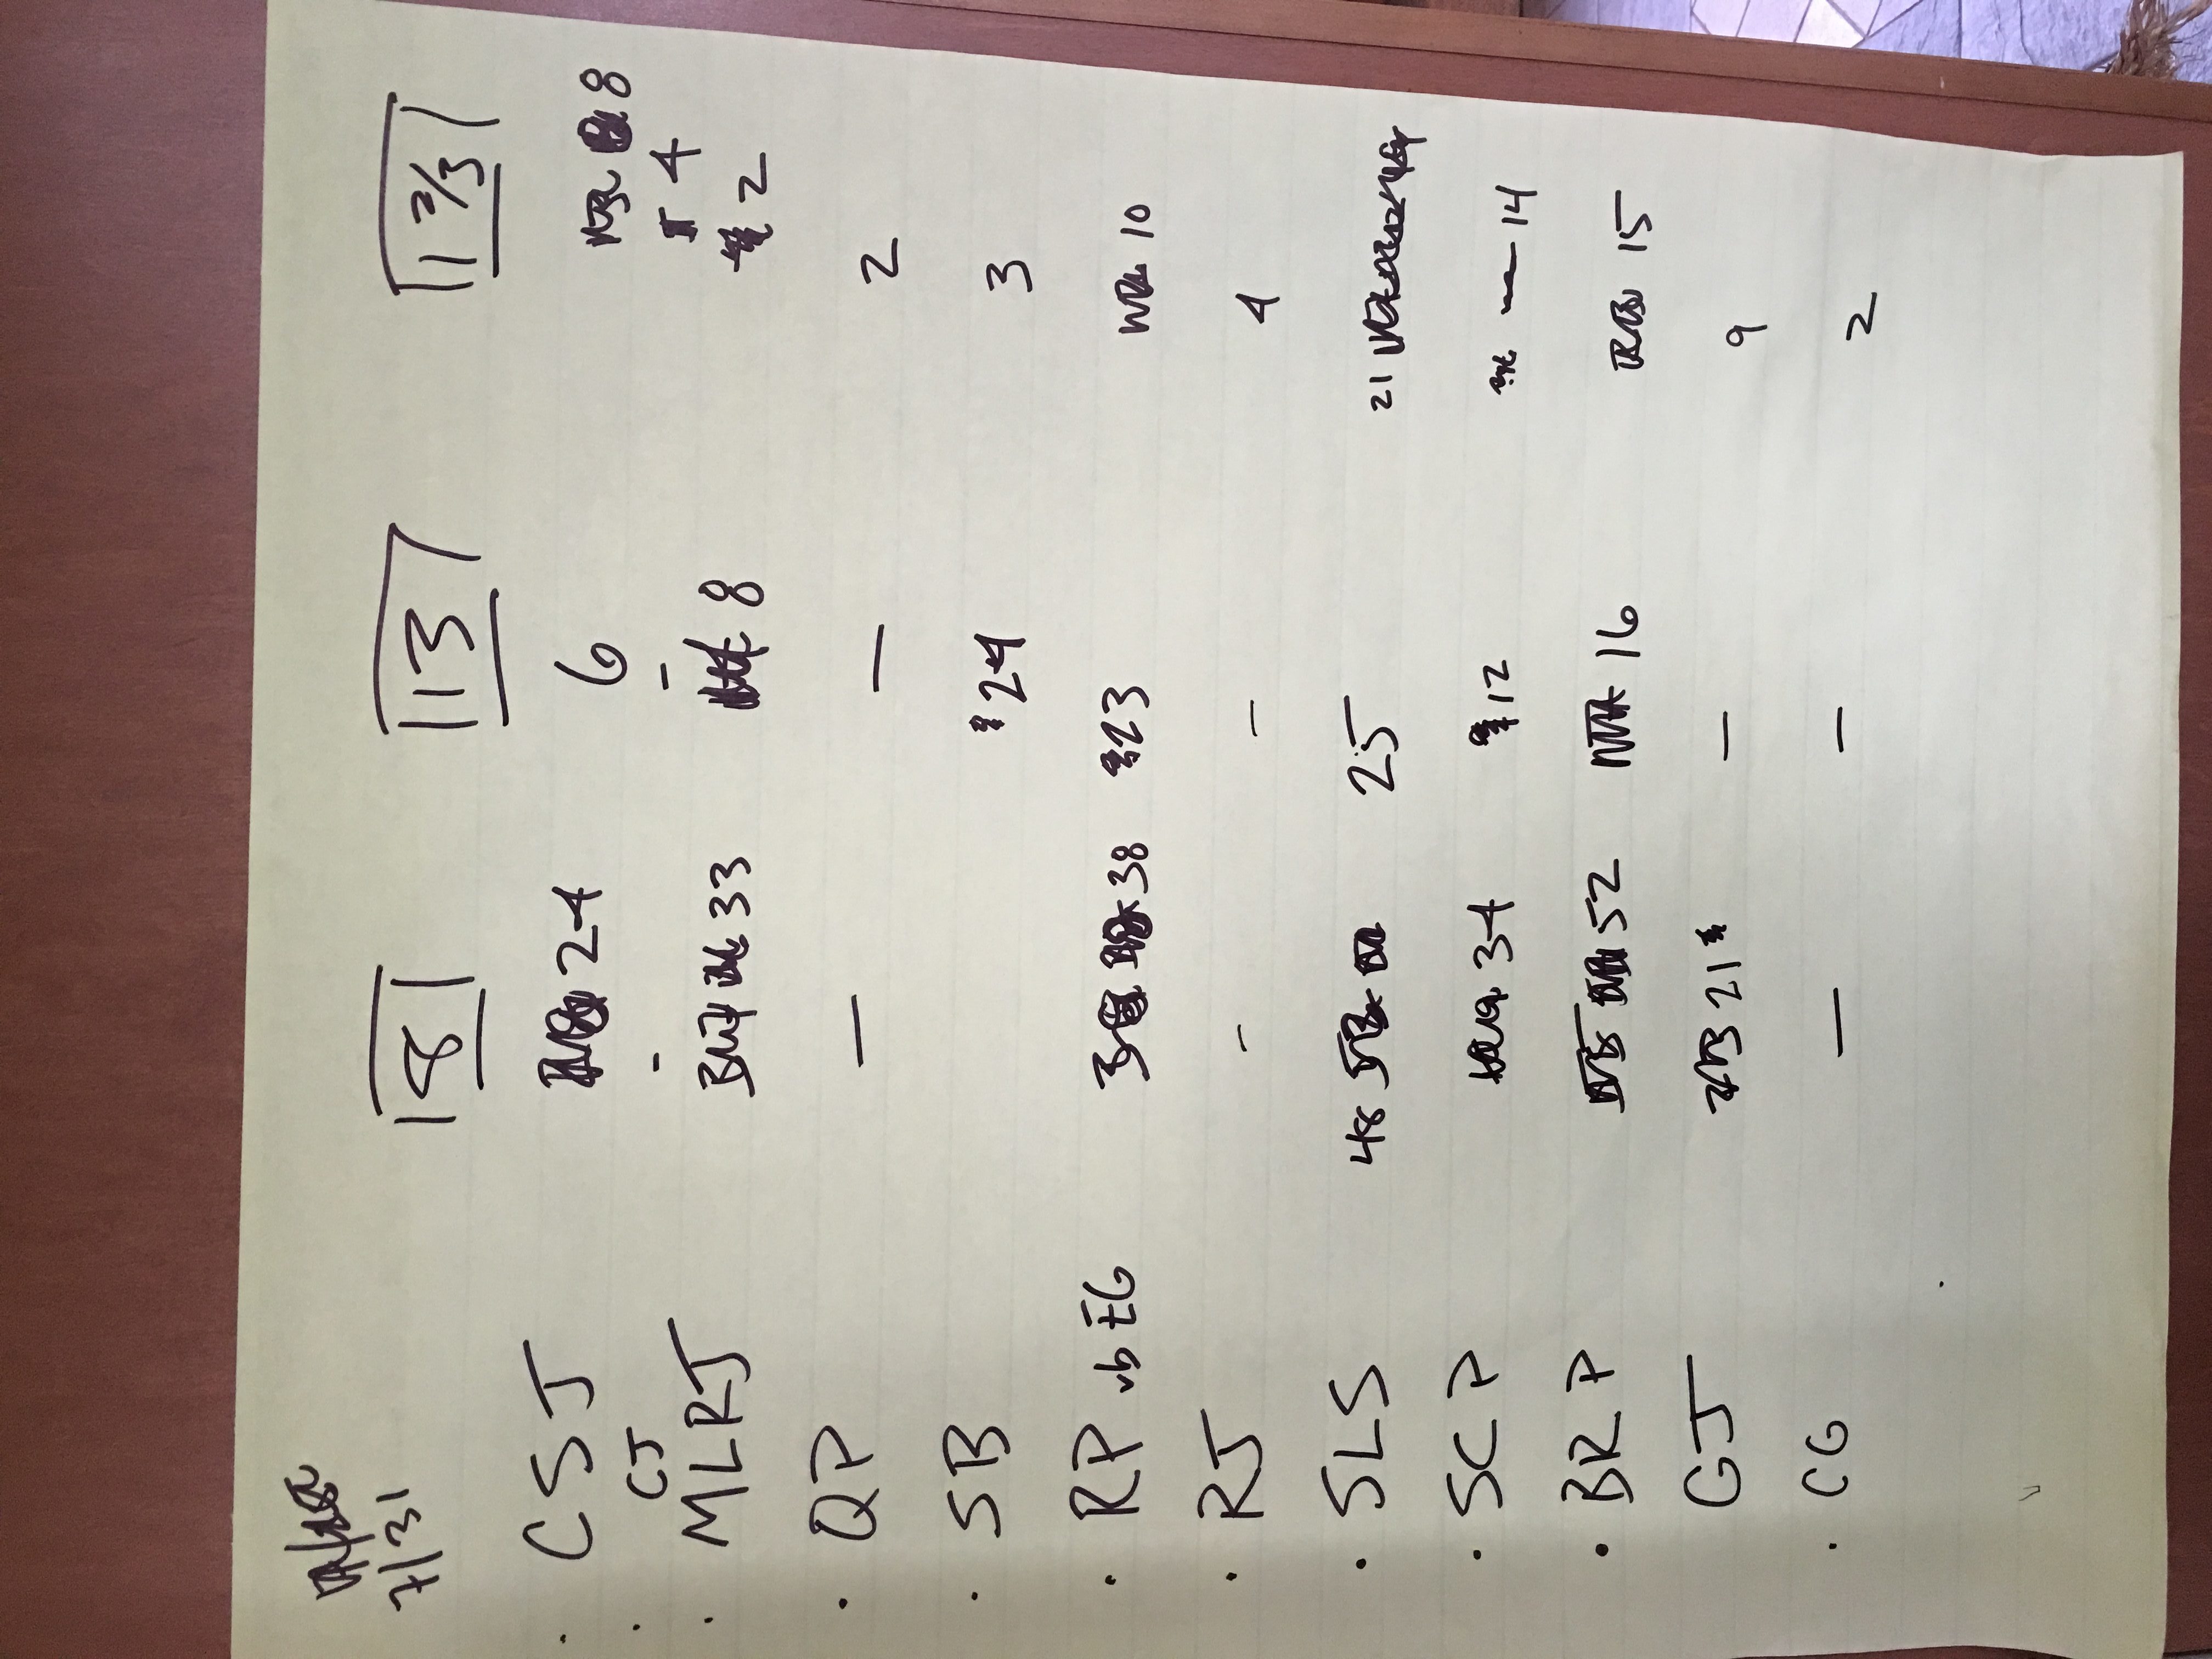 7/31
8 113 1 2/3
CSJ 24 6 8
CJ - - 4
MLRJ 33 8 2
QP — — 2
SB 24 3
RP vb EG 38 23 10
RJ - - 4
SLS 48 25 21
SCP 34 12 14
BRP 52 16 15
GJ 21 — 9
CG — — 2